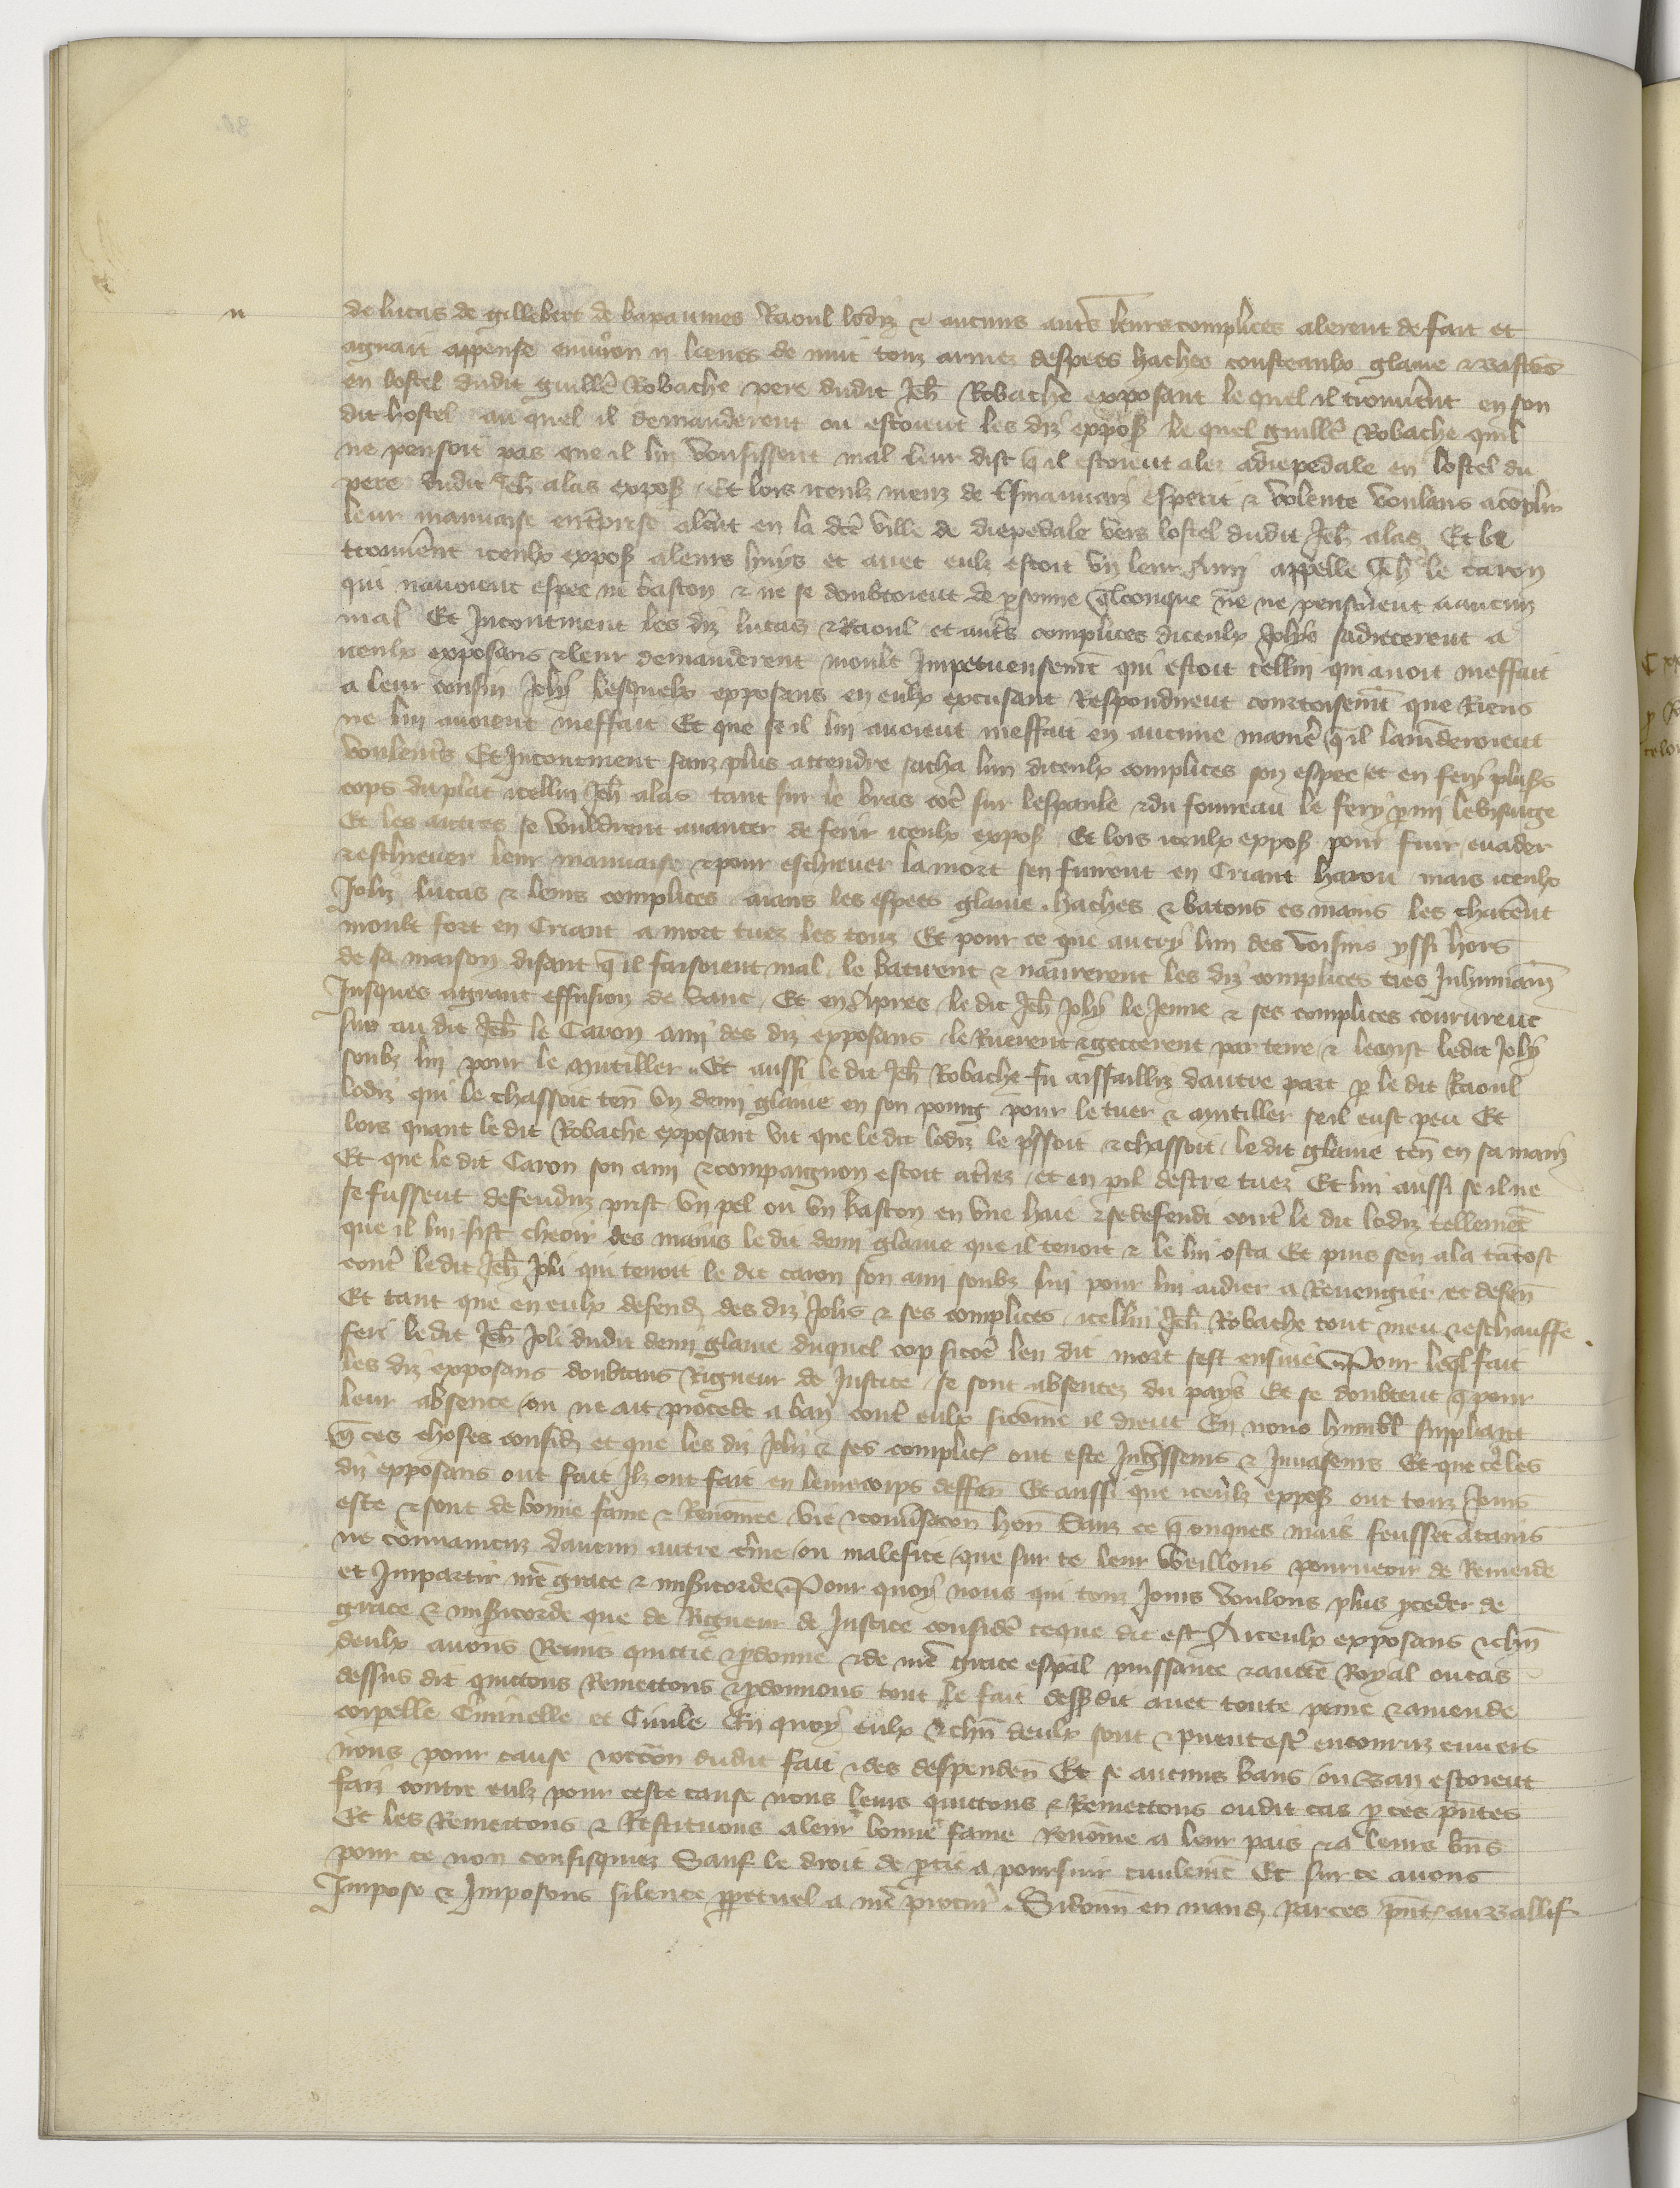 de lucas de gillebert de bapaumes Raoul lodiz & aucuns autrs leurs complices alerent de fait et
aguait appense environ ii lieues de nuit touz armez despees haches cousteaulx glaive & bastons
en lostel dudit guille Robache pere dudit Jeh Robache exposant le quel il trouverent en son
dit hostel au quel il demanderent ou estoient les diz expos le quel guille Robache quil
ne pensoit pas que il lui voulsissent mal leur dist q il estoient alez a diepedale en lostel du
pere dudit Jeh alas expos Et lors iceulz meuz de mauvaiz esperit & volente voulans acoplir
leur mauvaise entprise alerent en la dce ville de diepedale vers lostel dudit Jeh alas Et la
trouverent iceulx expos a leurs huys et avec eulz estoit un leur Amy appelle Jeh le Caron
qui navoient espee ne baston & ne se doubtoient de psonne qlconque ne ne pensoient a aucun
mal Et Incontinent les diz lucas & Raoul et autrs complices diceulx Jolys sadrecerent a
iceulx exposans & leur demanderent moult Impetueusemt qui estoit cellui qui avoit meffait
a leur cousin Joly lesquelx exposans en eulx excusant Respondirent courtoisemt que Riens
ne lui avoient meffait Et que se il lui avoient meffait en aucune manie q il lamenderoient
voulentrs Et Incontinent sanz plus attendre sacha lun diceulx complices son espee et en fery plusrs
cops du plat icellui Jeh alas tant sur le bras coe sur lespaule & du fourreau le fery pmi le visaige
Et les autres se vouldrent avancer de ferir iceulx expos Et lors iceulx expos pour fuir evader
& eschever leur mauvaise & pour eschever la mort sen fuirent en Criant harou mais iceulx
Joliz lucas & leurs complices aians les espees glaive haches & batons es mains les chacerent
moult fort en Criant a mort tuez les touz Et pour ce que autry lun des voisins yssi hors
de sa maison disant q il faisoient mal le batirent & navrerent les diz complices tres Inhumainmt
Jusques a grant effusion de sanc Et en Apres le dit Jeh Joly le Jeune & ses complices coururent
sur au dit Jeh le Caron ami des diz exposans le Ruerent & getterent par terre & le mist ledit Joly
soubz lui pour le mutiller Et aussi le dit Jeh Robache fu assailliz dautre part p le dit Raoul
lodiz qui le chassoit ten un demi glaive en son poing pour le tuer & mutiller se il eust peu Et
lors quant le dit Robache exposant vit que le dit lodiz le pssoit & chassoit le dit glaive ten en sa main
Et que le dit Caron son ami & compaignon estoit atrez et en pil destre tuez Et lui aussi se il ne
se fussent defenduz prist un pel ou un baston en une haie & se defendi contr le dit lodiz tellemt
que il lui fist cheoir des mains le dit demi glaive que il tenoit & le lui osta Et puis sen ala tatost
contr le dit Jeh Joli qui tenoit le dit caron son ami soubz lui pour lui aidier a Revengier et defen
Et tant que en eulx defend des diz Jolis & ses complices icellui Jeh Robache tout meu & eschauffe
feri le dit Jeh Joli dudit demi glaive duquel cop sicoe len dit mort sest ensuie Pour leql fait
les diz exposans doubtans Rigueur de Justice se sont absentez du pays Et se doubtent q pour
leur absence on ne ait procede a ban contr eulx sicomme il dient En nous humbl suppliant
q ces choses consid et que les diz Joly & ses complic ont este Ingsseurs & Invaseurs Et que ce les
diz exposans ont fait Ilz ont fait en leur corps deffen Et aussi que iceulz expos ont touz Jours
este & sont de bonne fame & Renomee vie & conversacon hon Sanz ce q onques mais feusset attains
ne convaincuz daucun autre crime ou malefice que sur ce leur veillons pourveoir de Remede
et Impartir nre grace & misicorde Pour quoy nous qui touz Jours voulons plus pceder de
grace & misicorde que de Rigueur de Justice consider ce que dit est A iceulx exposans & chun
deulx avons Remis quittie & pdonne & de nre grace espal puissance & aucte Royal ou cas
dessus dit quittons Remettons & pdonnons tout le fait dessdit avec toute peine & amende
corpelle Criminelle et Civile En quoy eulx & chun deulx sont & puent estre encouruz envers
nous pour cause & occon dudit fait & des despenden Et se aucuns bans ou ban estoient
faiz contre eulz pour ceste cause nous leurs quittons & Remettons oudit cas p ces pntes
Et les Remettons & Restituons a leur bonne fame Renomee a leur pais & a leurs bns
pour ce non confisquiez Sauf le droit de ptie a poursuir civilemt Et sur ce avons
Impose & Imposons silence ppetuel a nre procur Si donn en mand par ces pnt au Baillif